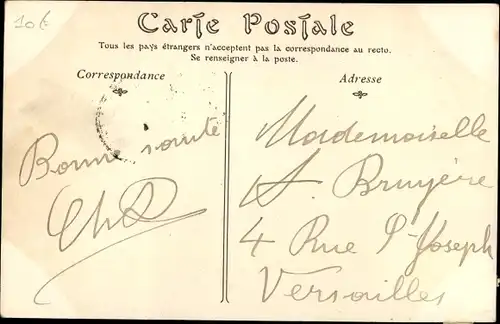 10€
Carte Postale
Tous les pays étrangers n'acceptent pas la correspondance au recto.
Se renseigner à la poste.
Correspondance
Adresse
Bonne santé
ChD
Mademoiselle
A. Bruyère
4 Rue St-Joseph
Versailles